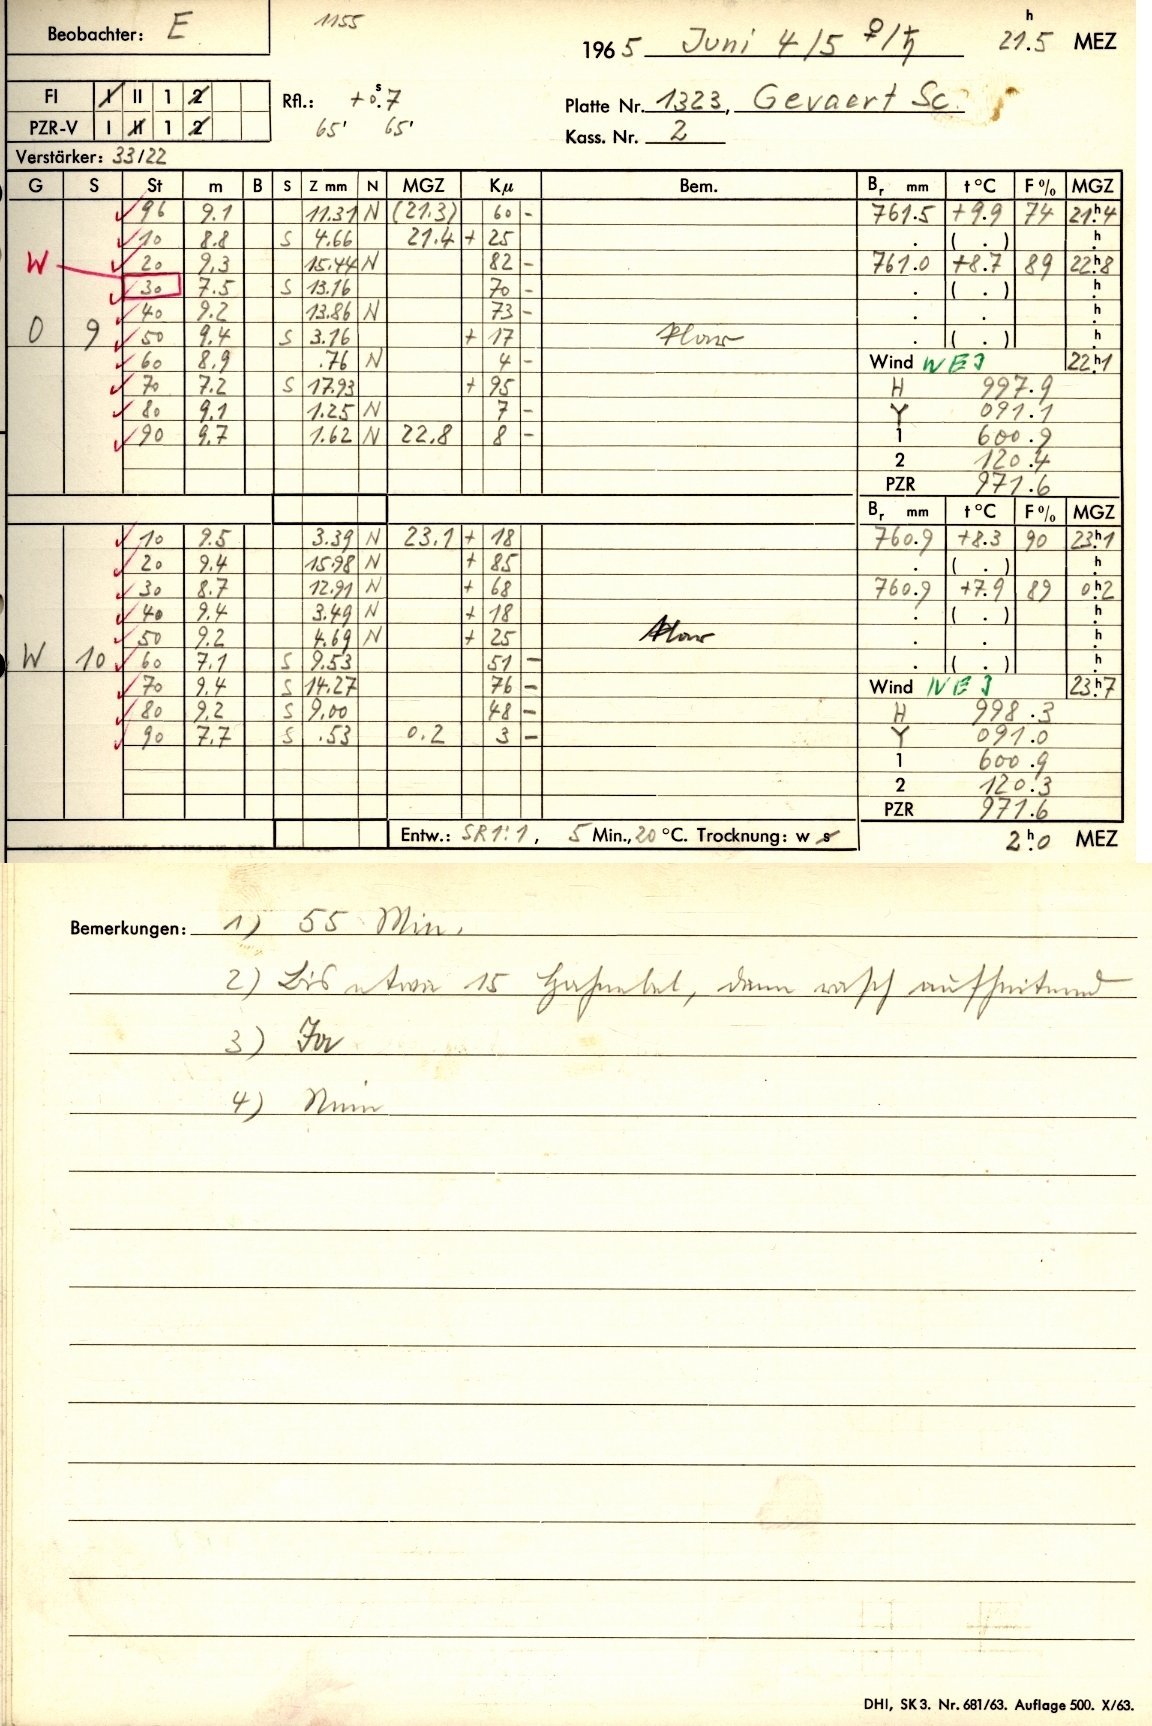 Beobachter: E
1155
1965 Juni 4/5 ♀/♄ 21.5 h MEZ
FI I II 1 2
PZR-V I II 1 2
Rfl.: +0.s7
65' 65'
Platte Nr. 1323, Gevaert Sc.
Kass. Nr. 2
Verstärker: 33/22
G S St m B S Z mm N MGZ Kμ Bem. Br mm t °C F % MGZ
96 9.1 11.31 N (21.3) 60 - 761.5 +9.9 74 21h4
10 8.8 S 4.66 21.4 + 25 . ( . ) h
W 20 9.3 15.44 N 82 - 761.0 +8.7 89 22h8
30 7.5 S 13.16 70 - . ( . ) h
40 9.2 13.86 N 73 - . . h
O 9 50 9.4 S 3.16 + 17 . ( . ) h
60 8.9 .76 N 4 - Wind 22h1
70 7.2 S 17.93 + 95 H 997.9
80 9.1 1.25 N 7 - Y 091.1
90 9.7 1.62 N 22.8 8 - 1 600.9
2 120.4
PZR 971.6
Br mm t °C F % MGZ
10 9.5 3.39 N 23.1 + 18 760.9 +8.3 90 23h1
20 9.4 15.98 N + 85 . ( . ) h
30 8.7 12.91 N + 68 760.9 +7.9 89 0h2
40 9.4 3.49 N + 18 . ( . ) h
50 9.2 4.69 N + 25 . . h
W 10 60 7.1 S 9.53 51 - . ( . ) h
70 9.4 S 14.27 76 - Wind 23h7
80 9.2 S 9.00 48 - H 998.3
90 7.7 S .53 0.2 3 - Y 091.0
1 600.9
2 120.3
PZR 971.6
Entw.: SR1:1, 5 Min., 20 °C. Trocknung: w s 2h0 MEZ
Bemerkungen: 1) 55 Min.
2) Bis etwa 15 , dann rasch aufheiternd
3) Ja
4) Nein
DHI, SK 3. Nr. 681/63. Auflage 500. X/63.